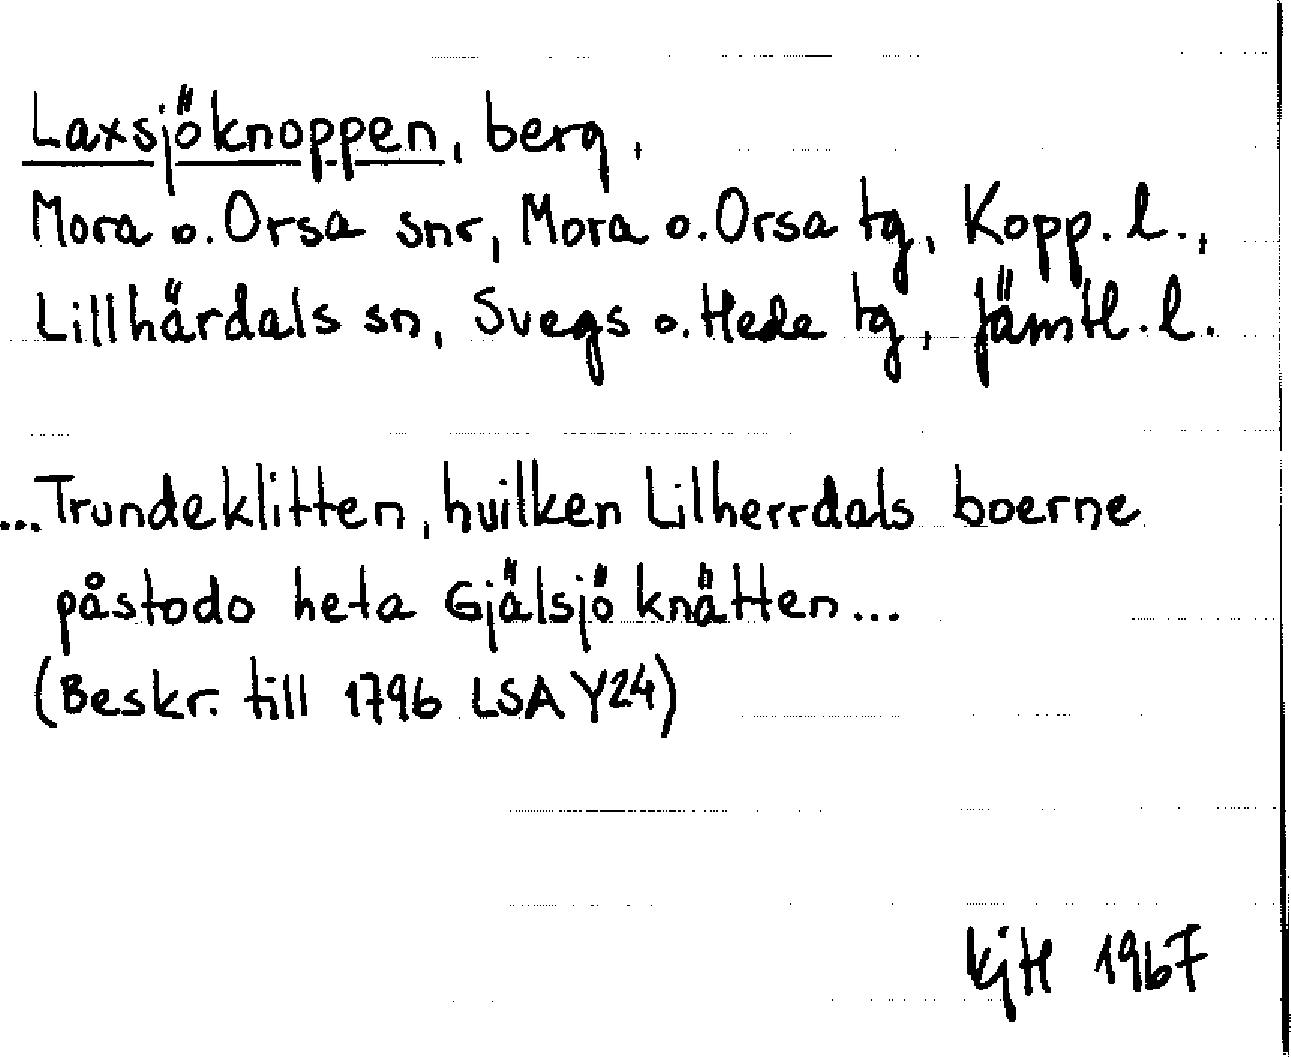 Laxsjöknoppen, berg,
Mora o. Orsa snr, Mora o. Orsa tg, Kopp. l.,
Lillhärdals sn, Svegs o. Hede tg, Jämtl. l.
...Trundeklitten, hvilken Lilherrdals boerne
påstodo heta Gjälsjö knätten...
(Beskr. till 1796 LSA Y24)
KjH 1967